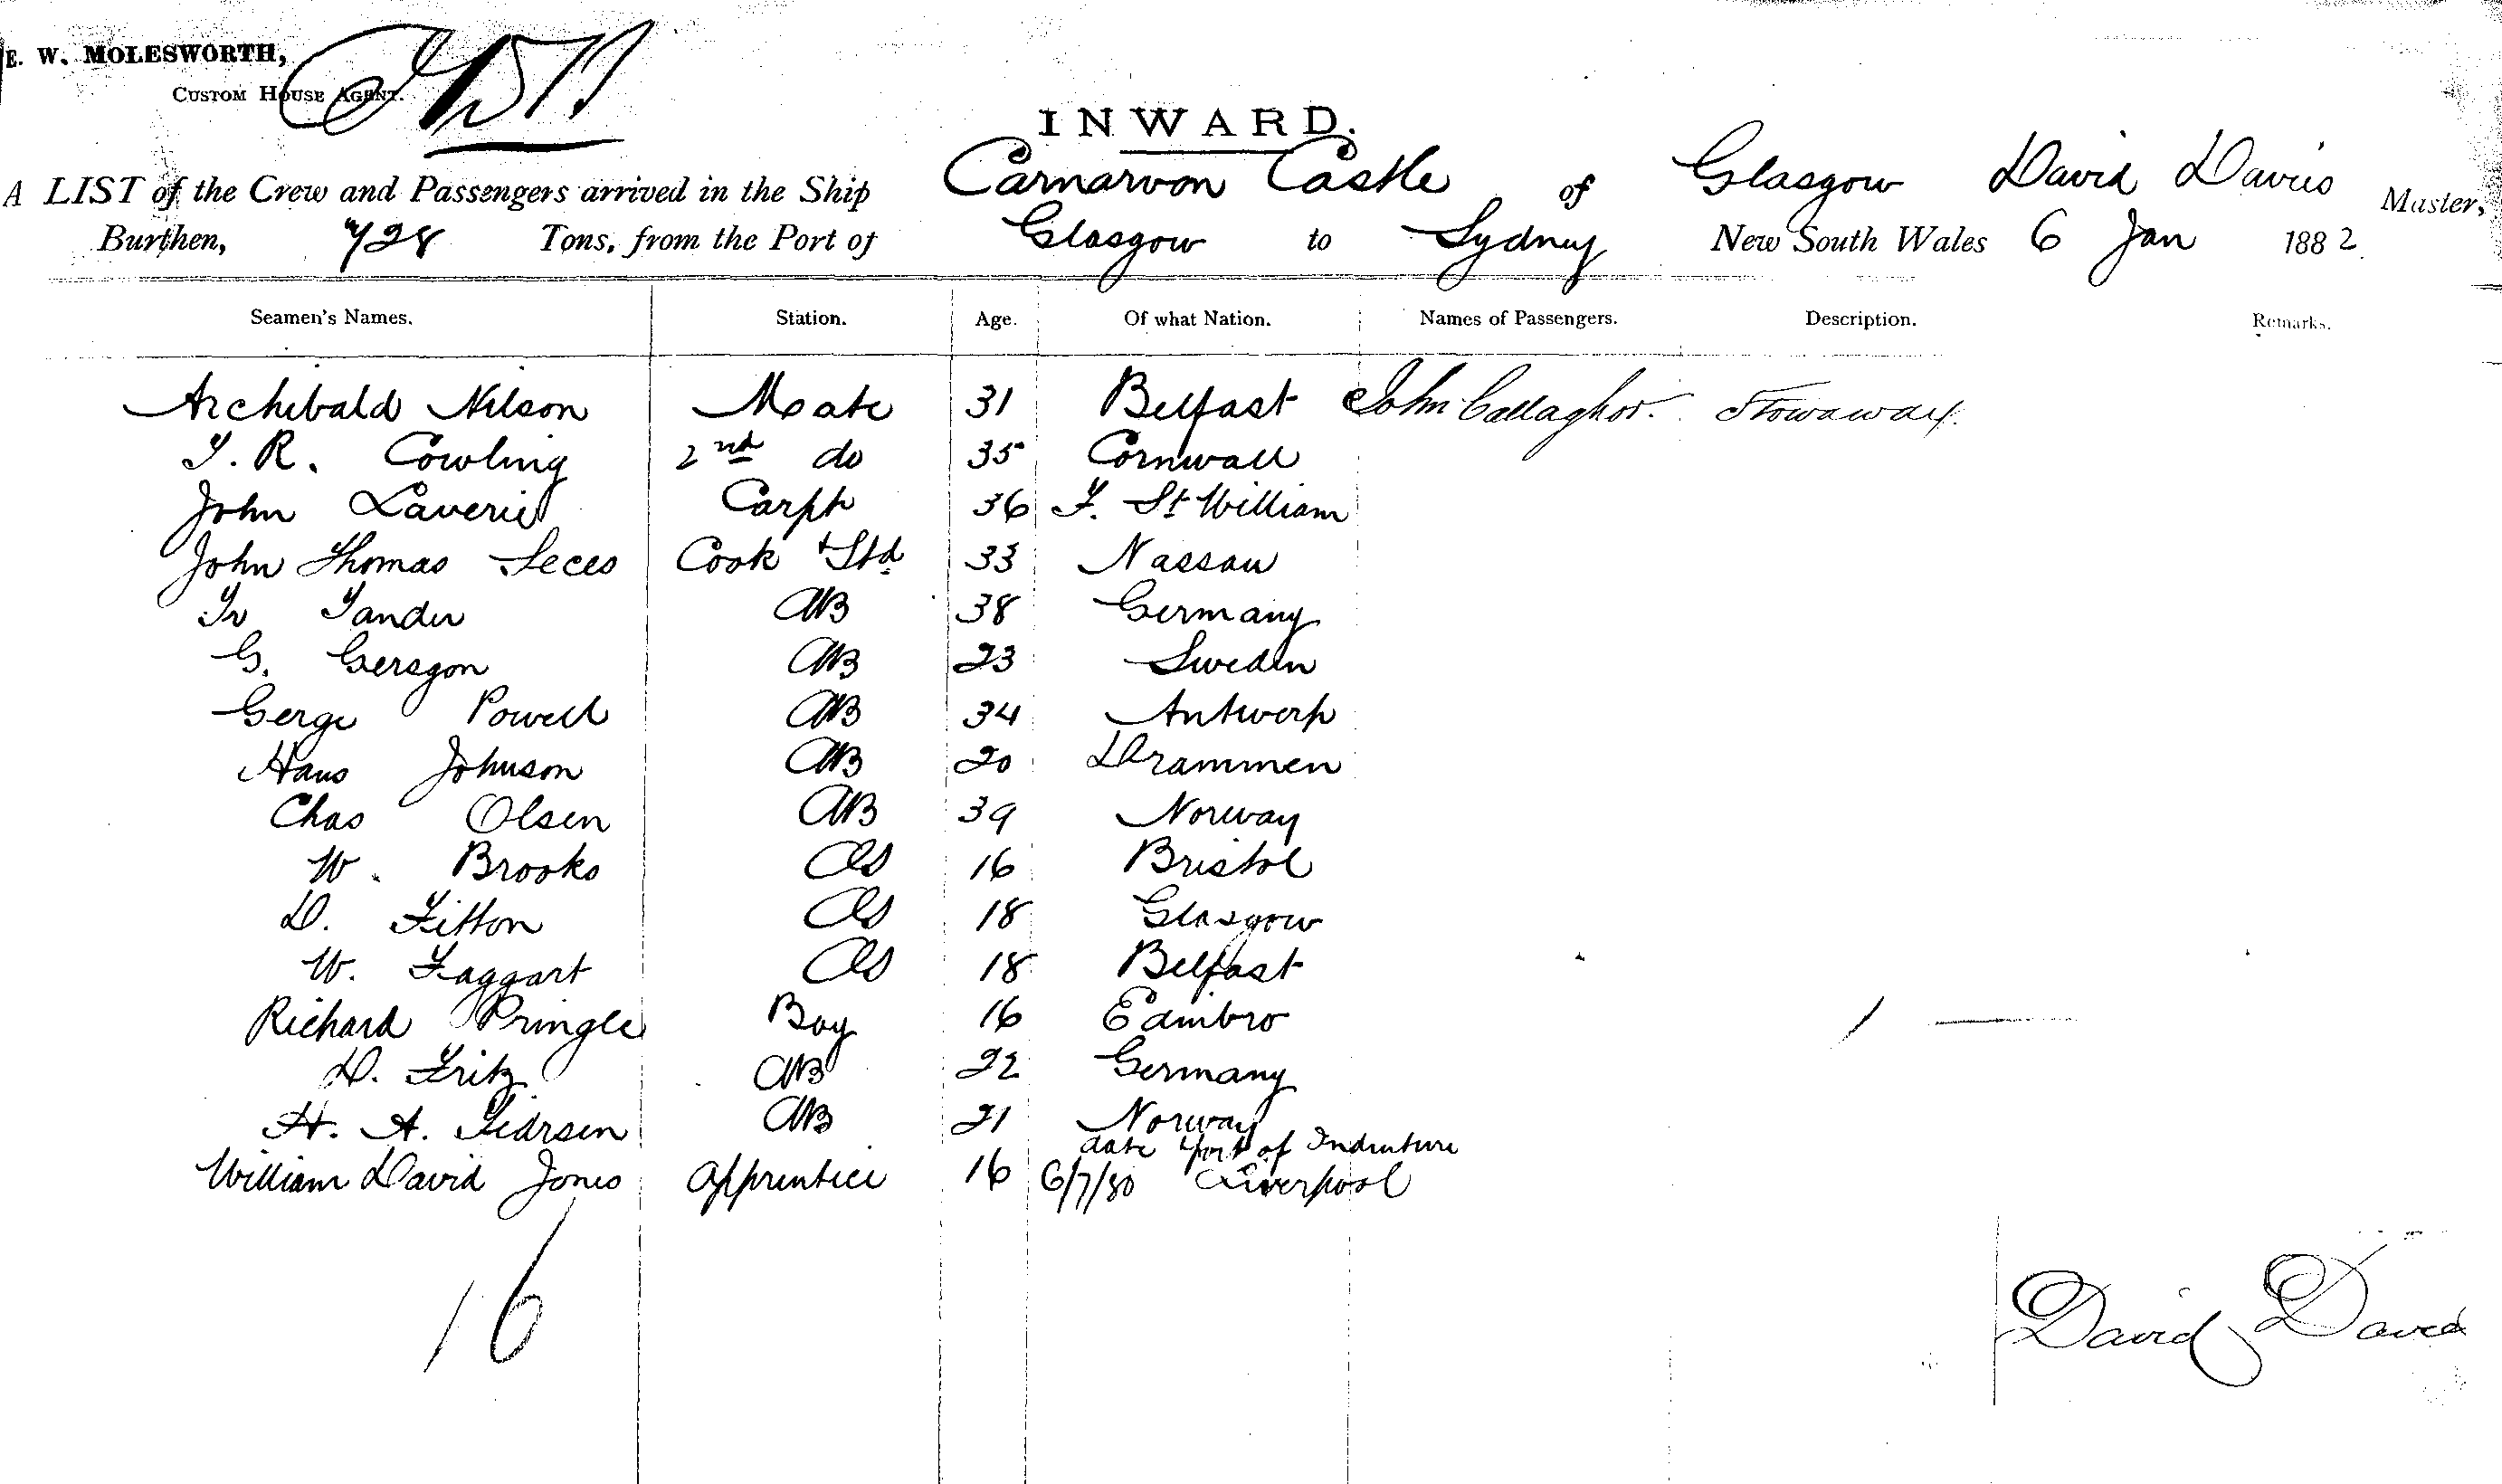 E. W. MOLESWORTH,
CUSTOM HOUSE AGENT.
INWARD.
A LIST of the Crew and Passengers arrived in the Ship Carnarvon Castle of Glasgow David Davies Master,
Burthen, 728 Tons, from the Port of Glasgow to Sydney New South Wales 6 Jan 1882
Seamen's Names. Station. Age. Of what Nation. Names of Passengers. Description. Remarks.
Archibald Nilson Mate 31 Belfast John Callaghor. Stowaway.
T. R. Cowling 2nd do 35 Cornwall
John Laverie Carptr 36 F. St William
John Thomas Seces Cook & Std 33 Nassau
Tander AB 38 Germany
G. Gersgon AB 23 Sweden
Gerge Powell AB 34 Antwerp
Hans Johnson AB 20 Drammen
Chas Olsen AB 39 Norway
W. Brooks OS 16 Bristol
D. Fitton OS 18 Glasgow
W. Taggart OS 18 Belfast
Richard Pringle Boy 16 Edinbro
D. Fritz AB 22 Germany
H. A. AB 21 Norway
date & Port of Indenture
William David Jones apprentice 16 6/7/80 Liverpool
1
16
David Davies